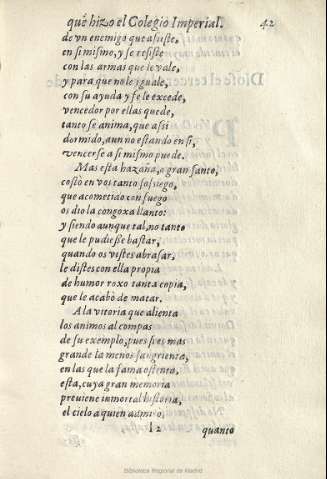 qué hizo el Colegio Imperial. 42
de vn enemigo que assiste,
en si mismo, y se resiste
con las armas que le vale,
y para que no le yguale,
con su ayuda y fe le excede,
vencedor por ellas quede,
tanto se anima, que assi
dormido, aun no estando en si,
vencerse a si mismo puede.
Mas esta hazaña, o gran santo,
costò en vos tanto sosiego,
que acometido con fuego
os dio la congoxa llanto:
y siendo aunque tal, no tanto
que le pudiesse bastar,
quando os vistes abrasar,
le distes con ella propia
de humor roxo tanta copia,
que le acabò de matar.
A la vitoria que alienta
los animos al compas
de su exemplo, pues es mas
grande la menos sangrienta,
en las que la fama ostenta,
esta, cuya gran memoria
preuiene inmortal historia,
el cielo a quien admirò,
l 2 quanto
Biblioteca Regional de Madrid